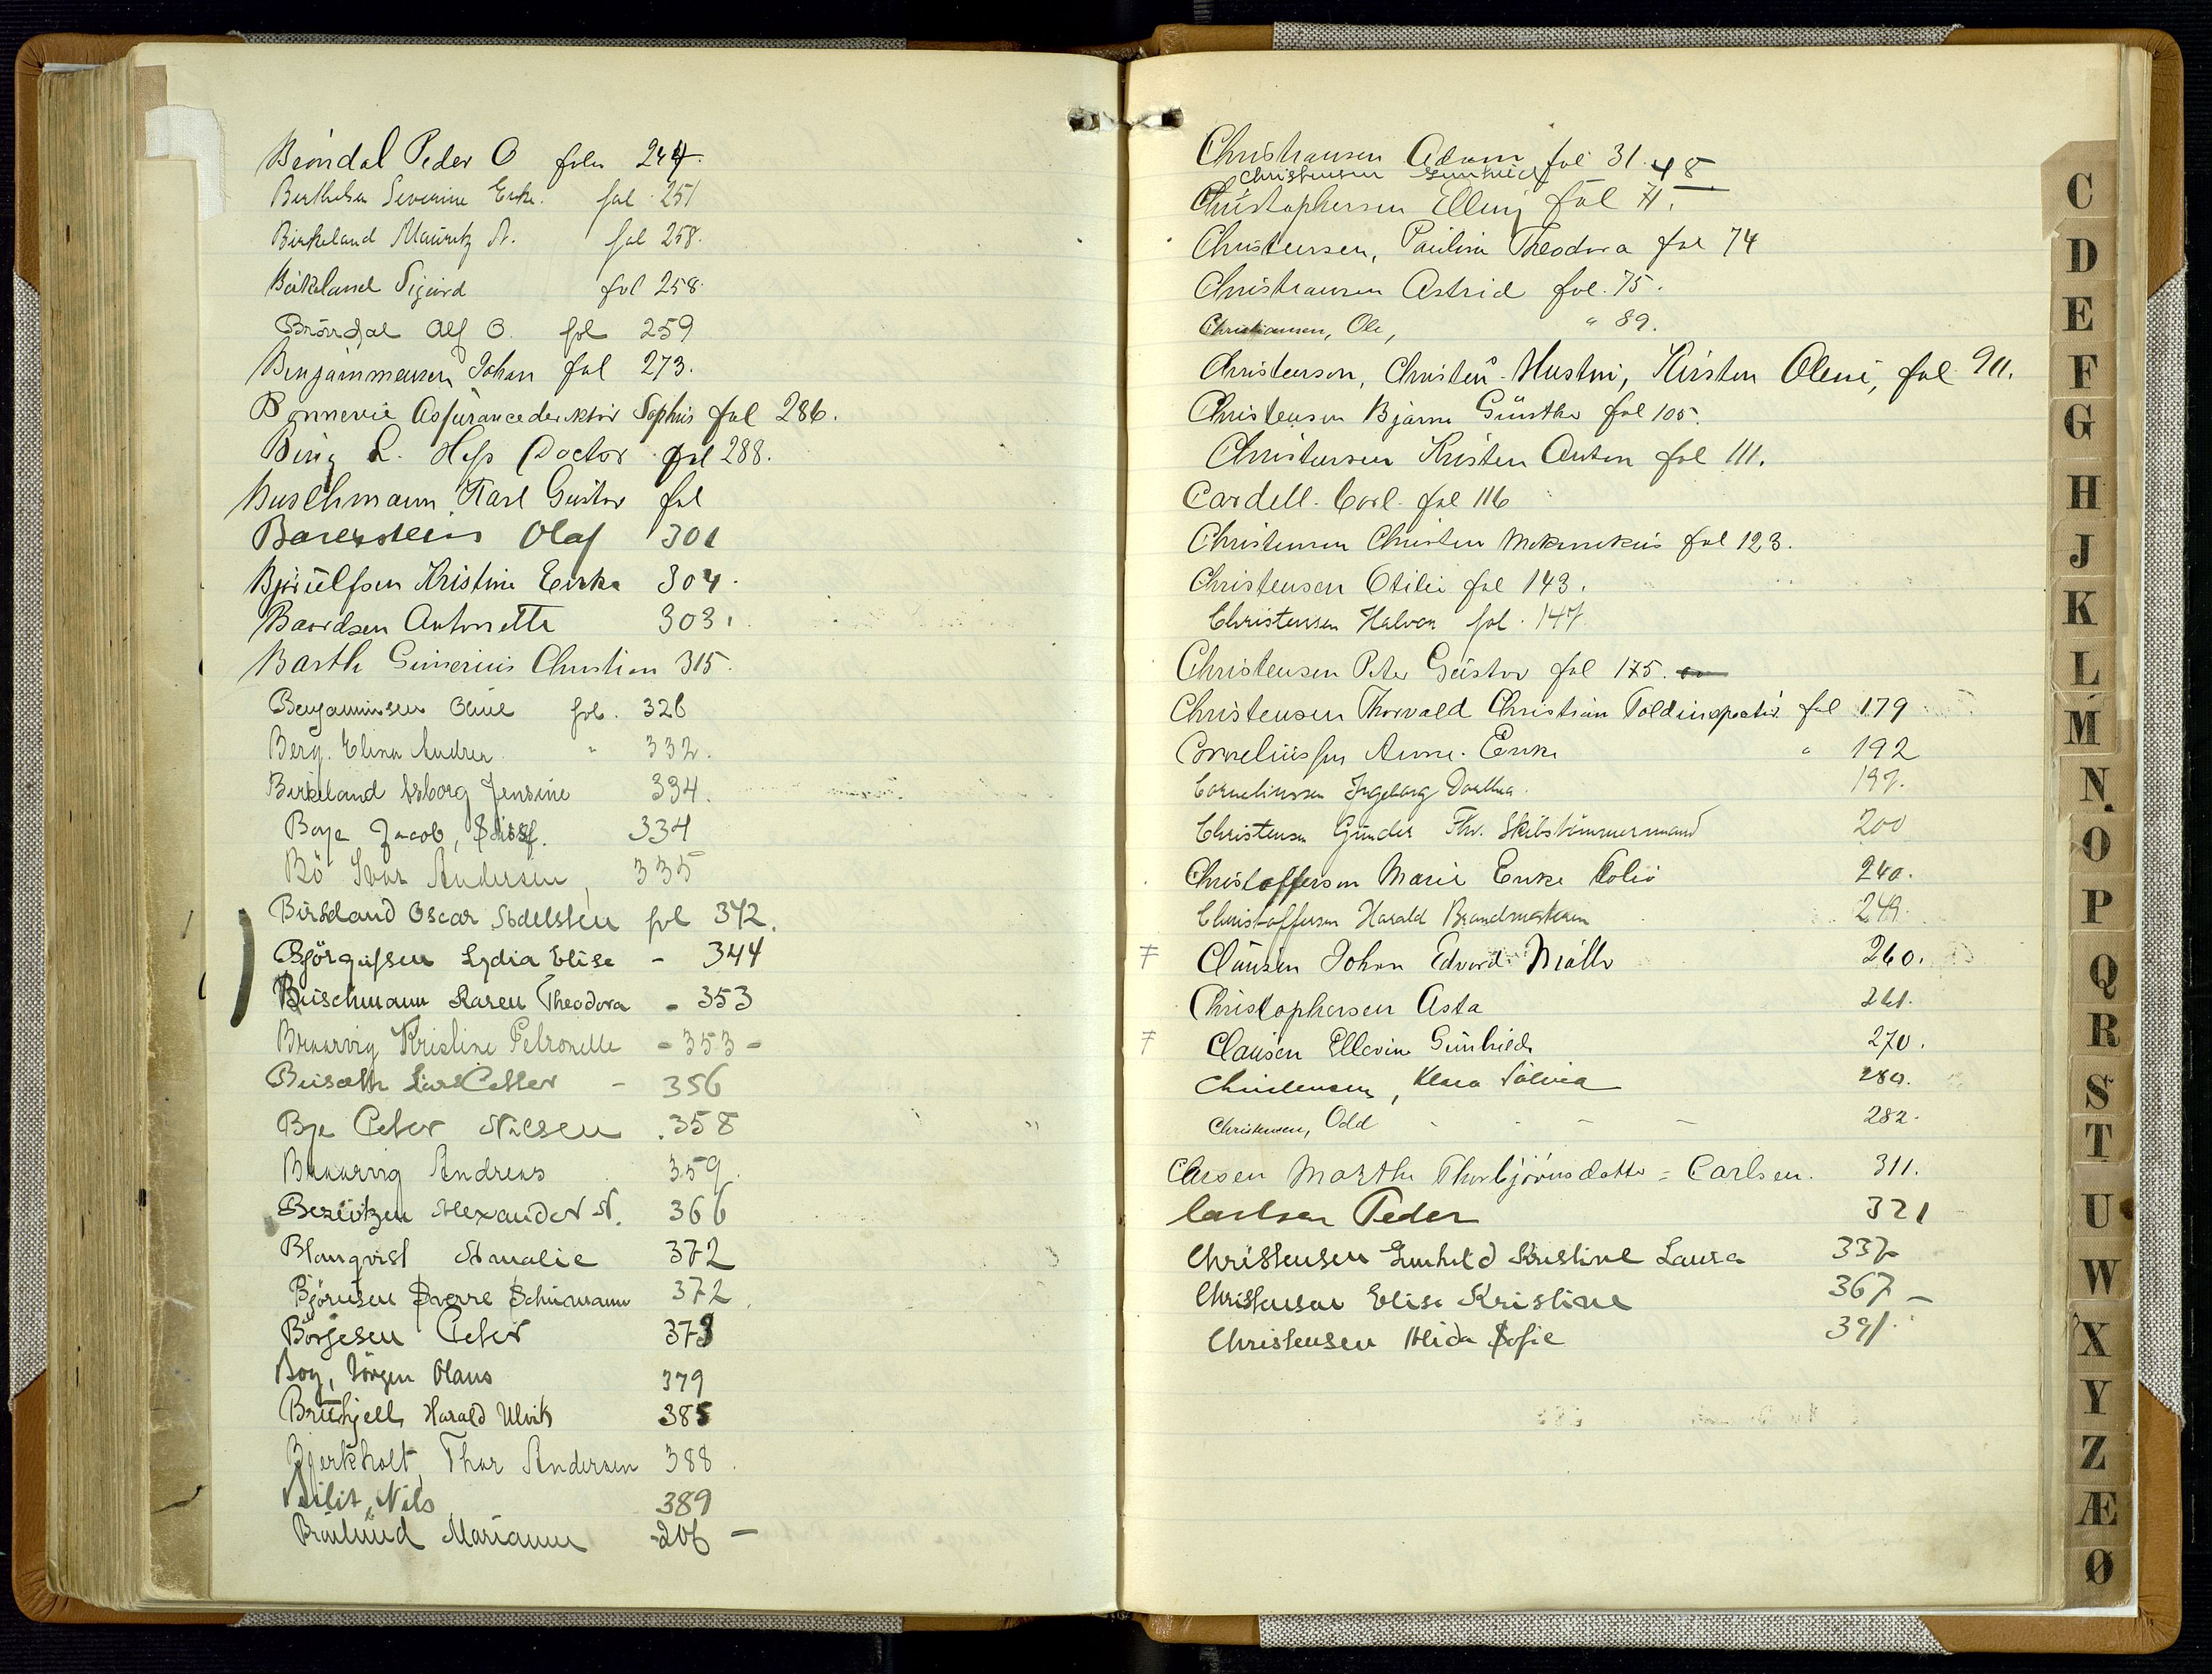 Bröndal Peder O folio 244.
Berthelsen Severine Enke. fol 251
Birkeland Mauritz A. fol 258.
Birkeland Sigurd fol 258.
Bröndal Alf O. fol 259
Benjaminsen Johan fol 273.
Bonnevie Assurancedirektör Sophus fol 286.
Bing L. Hess Doctor fol 288.
Buschmann Karl Gustav fol
Olaf 301
Bjöiulfsen Kristine Enke 304.
Baardsen Antonette 303.
Barth Christian 315.
Benjaminsen Oline fol. 326
Berg. Elina Andrea " 332.
Birkeland Asborg Jensine 334.
Boye Jacob, 334
Bö Ivar Andersen, 335
Birkeland Oscar Adelsten fol 342.
Björgufsen Lydia Elise - 344
Buschmann Karen Theodora - 353
Brekkevig Kristine Petronelle - 353 -
Lars Petter - 356
Bye Peter Nilsen . 358
Andreas 359.
Berentzen Alexander N. 366
Blanqvist Amalie 372
Björnsen Sverre Schürmann 372
Börjesen Peter 373
Boy, Jörgen Olaus 379
Harald Ulvik 385
Bjerkholt, Thor Andersen 388.
Nils 389
Brålund Marianne 206 -
Christiansen Adam fol 31.
Christensen Gunhild 48
Christophersen Elling fol 71.
Christensen, Pauline Theodora fol 74
Christiansen Astrid fol. 75.
Christiansen, Ole, " 89.
Christensen, Christen's Hustru, Kirsten Oleni, fol 911.
Christensen Bjarne Günther fol 105.
Christensen Kristen Anton fol 111.
Cardell. Carl. fol 116
Christensen Christen Mekanikus fol 123.
Christensen Otilie fol 143.
Christensen Halvor fol. 147
Christensen Peter Gustav fol 175.
Christensen Thorvald Christian Toldinspektör fol 179
Corneliussen Anne. Enke " 192
Corneliussen Ingeborg Dorthea. 197.
Christensen Gunder Thv. Skibstömmermand 200
Christoffersen Marie Enke Folio 240.
Christoffersen Harald Brandmesteren 249.
Clausen Johan Edvard Möller 260.
Christophersen Asta 261.
Clausen Ellevine Gunhild 270.
Christensen, Klara Sölvia 280.
Christensen, Odd - - - 282.
Marthe Thorbjörnsdatter = Carlsen. 311.
Carlsen Peder 321
Christensen Gunhild Kristine Laura 337
Christensen Elise Kristine 367 -
Christensen Alida Sofie 391.
C
D
E
F
G
H
J
K
L
M
N
O
P
Q
R
S
T
U
W
X
Y
Z
Æ
Ø